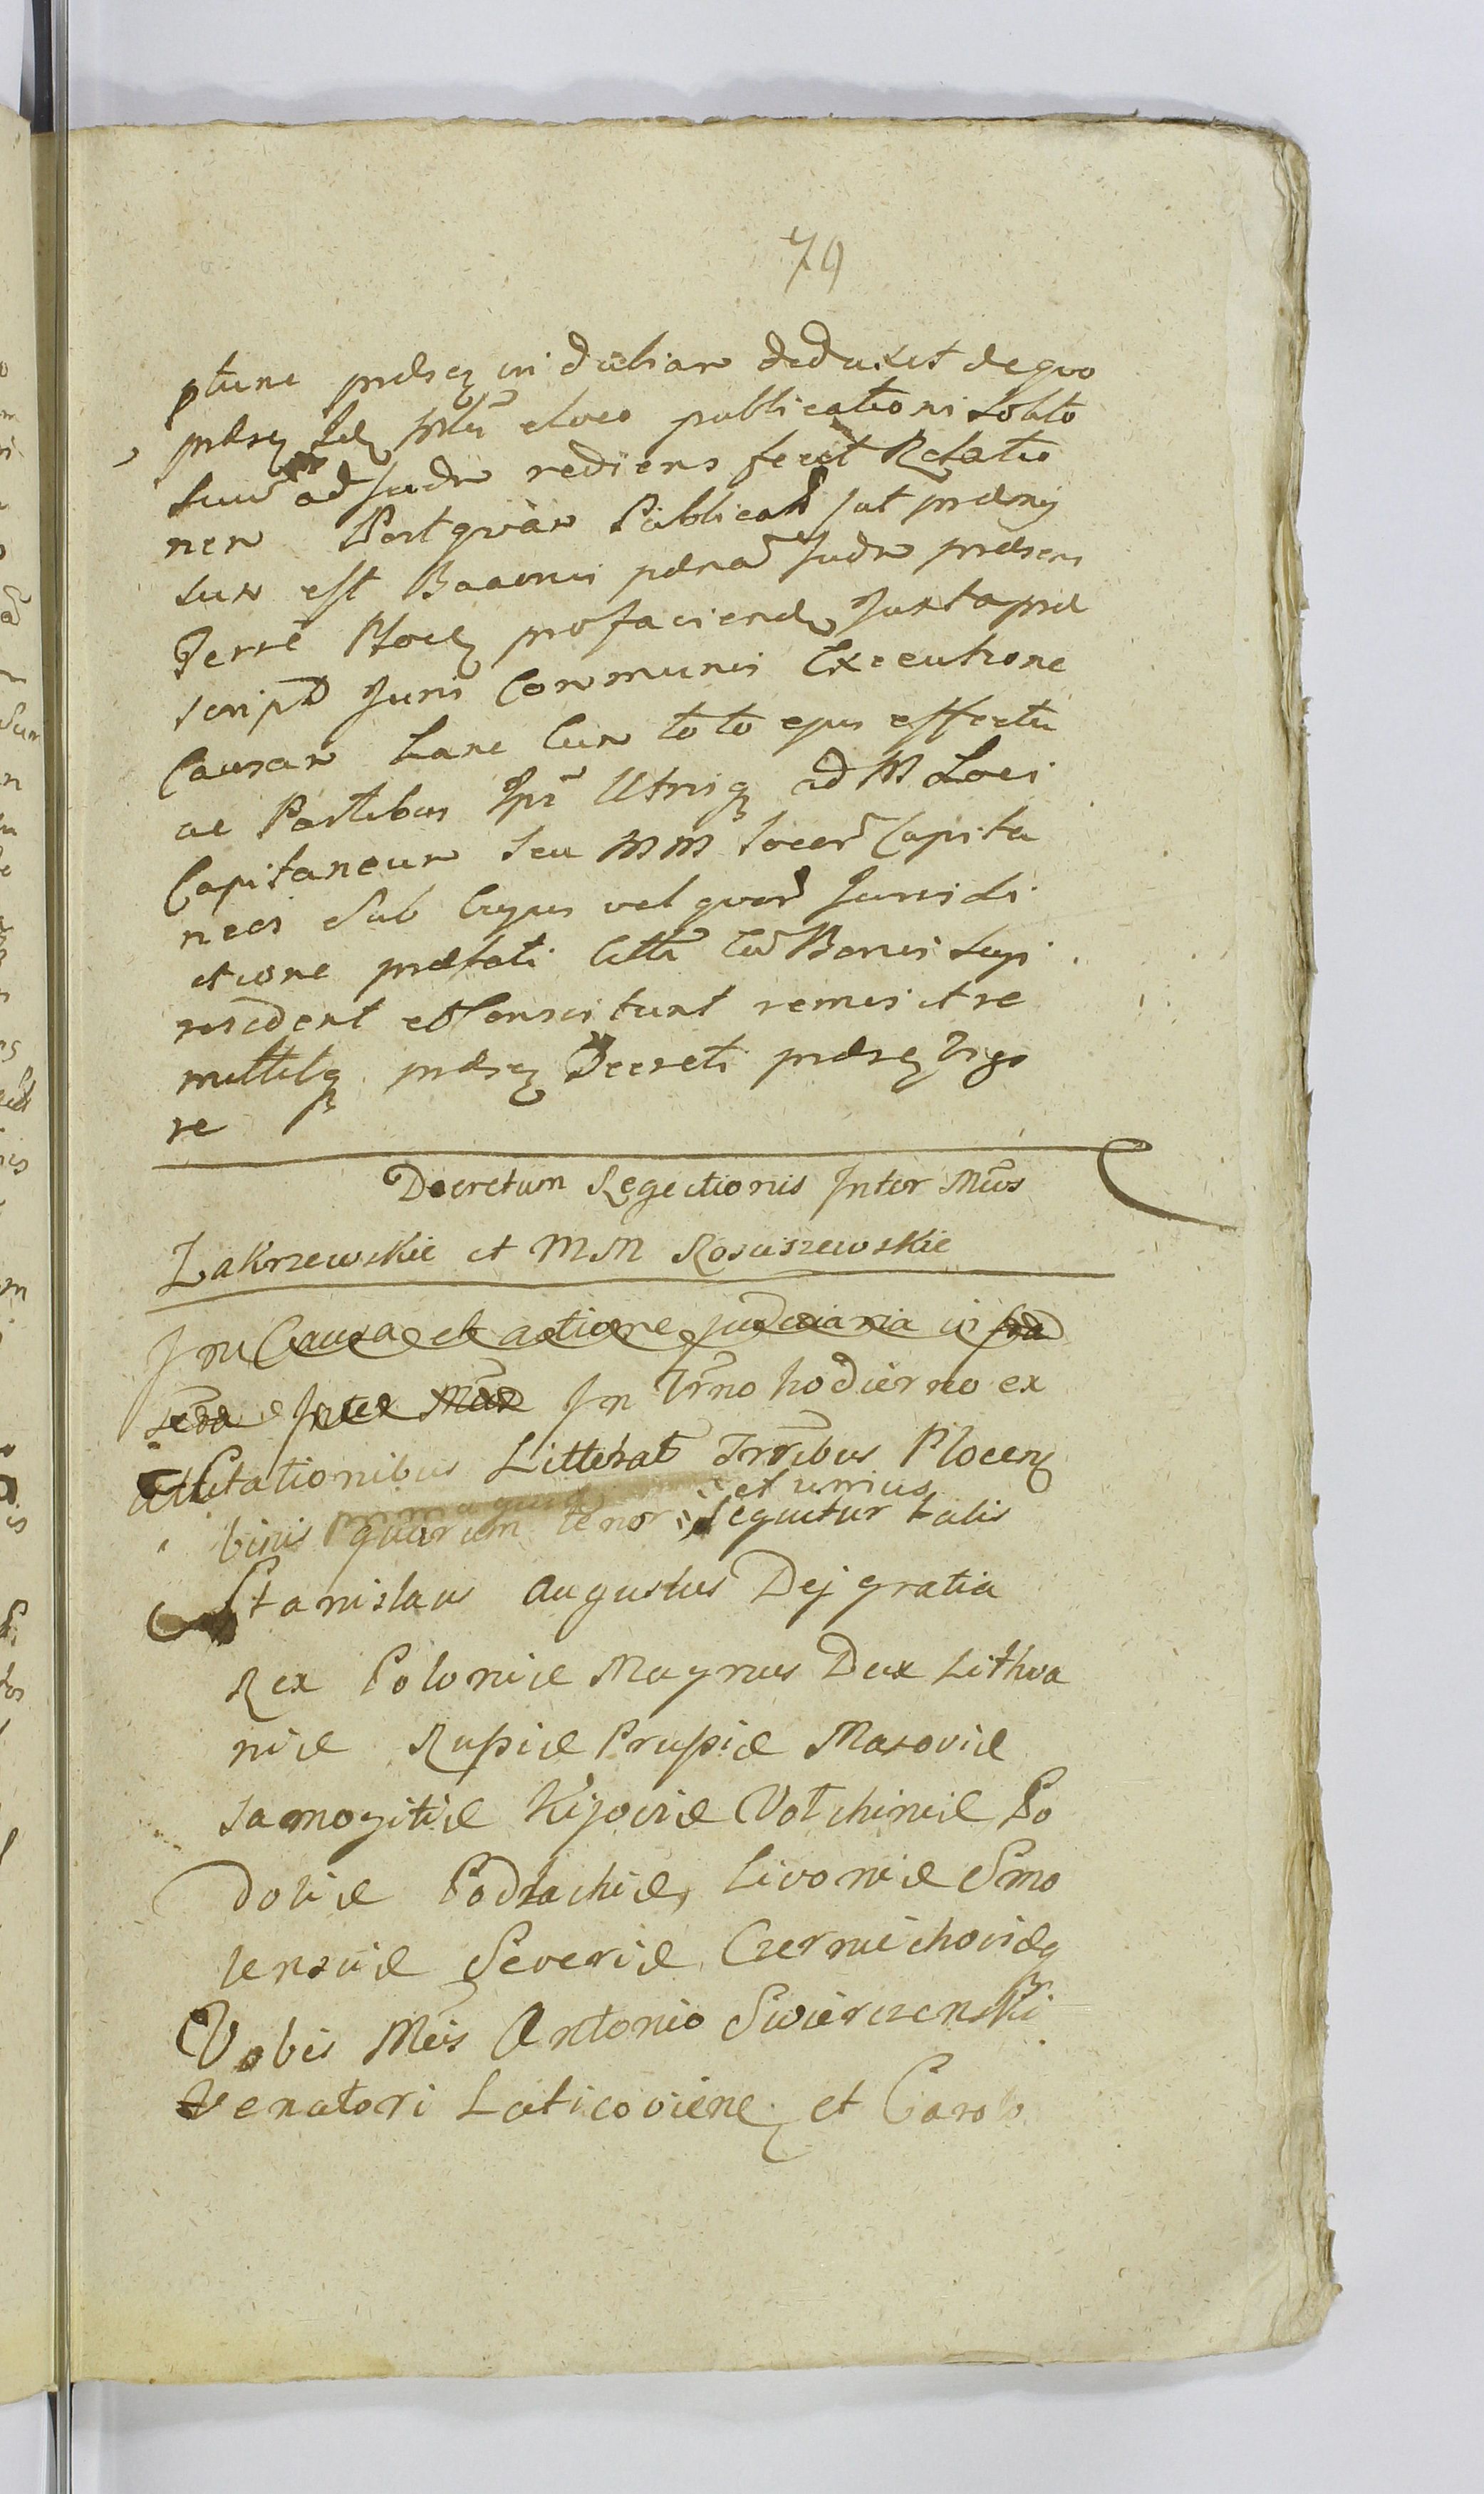 79
ptune præsen in dubiam deduxit de quo
præsen eloco publicationi solito
suum ad Judm rediens fecit Relatio
nem Postquam Publicat, ut præmis
sum est Bannis pæna Judm præsens
Terrē Plocen profaciend Juxta præ
script Juris Communis Executione
Causam hanc Cum toto ejus effectu
ac Partibus Ipī Utrisq ad M Loci
Capitaneum Seu MM locor Capita
neos Sub Cujus vel quor Jurisdi
ctione præfati Citti Cū Bonis Suis
resident et Consistunt remisit re
mittitq præsen Decreti præsen Vigo
re
Decretum Rejectionis Inter Mīcos
Zakrzewskie et MM Rosciszewskie
In Causa et actione judiciaria in fra
Inter In Trno hodierno ex
Citationibus Litterat Trribus Plocen
et unius
binis quarum tenor Sequitur talis
Stanislaus Augustus Dej gratia
Rex Poloniæ Magnus Dux Lithva
niæ Russiæ Prussiæ Masoviæ
Samogitiæ Kijoviæ Volchiniæ Po
doliæ Podlachiæ, Livoniæ Smo
lensciæ Severiæ Czerniechoviæq
Vobis Mcis Antonio Swierczenski
Venatori Laticoviene et Carolo